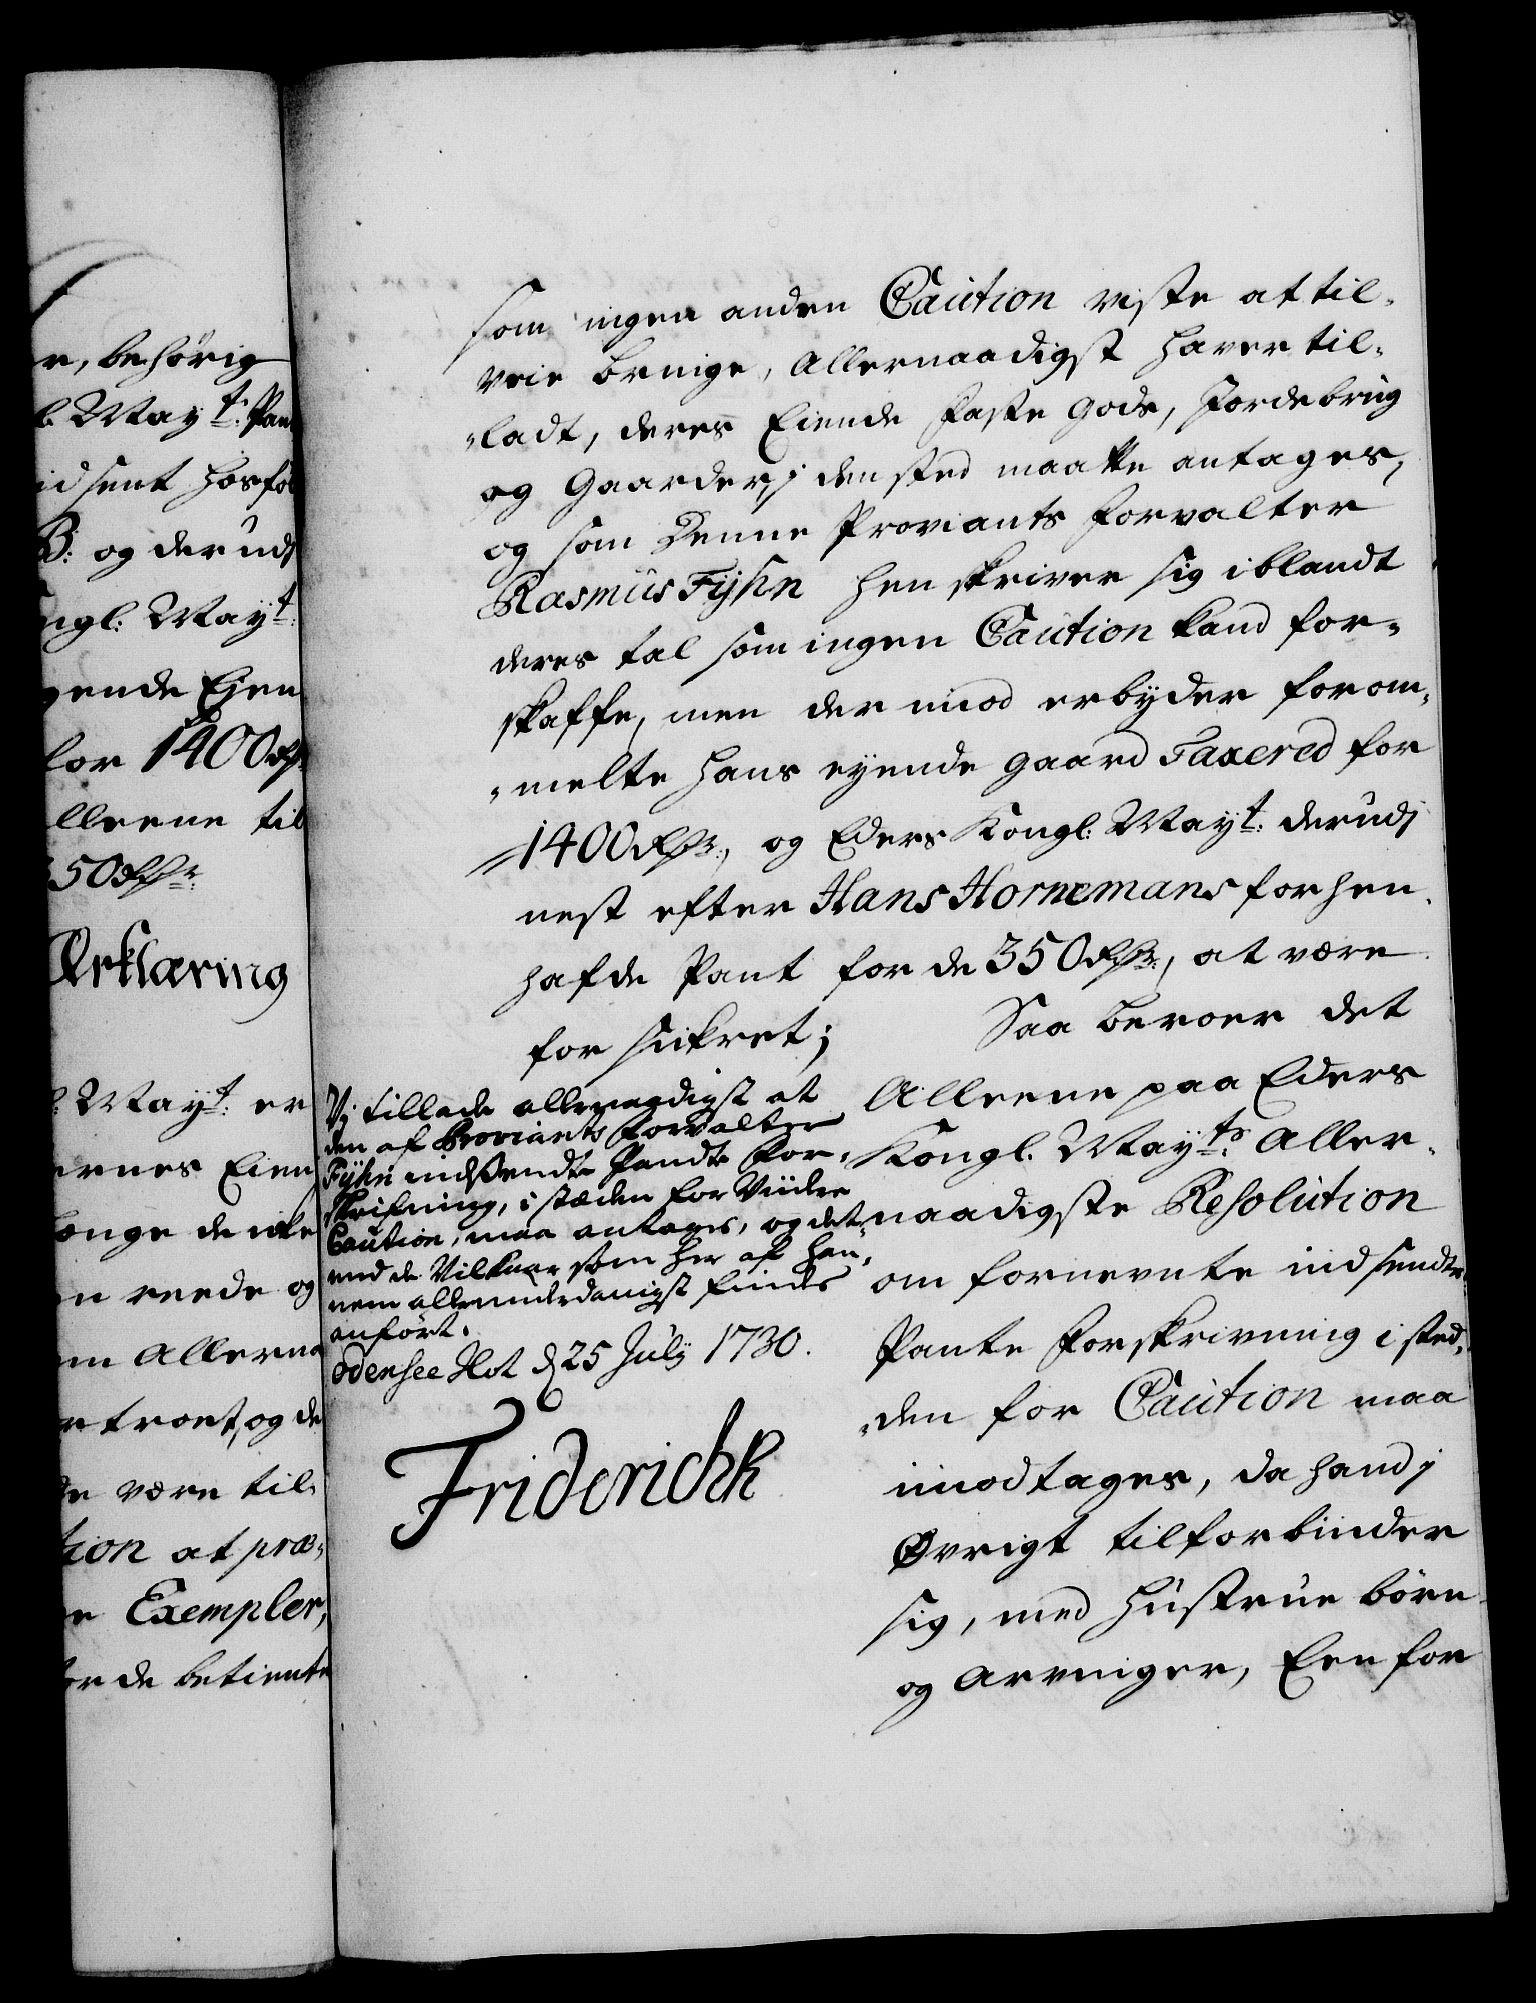 r, behørig
l. Mayt: Pan
idsent hosfø
B: og derudj
ngl: Mayt:
gende Ejen
for 1400 Rdr
lleene til
350 Rdr:
Erklæring
l: Mayt: er
ernes Eien
længe de icke
n reede og
m Allerna
r troet, og de
de være til¬
tion at præ¬
e Exempler,
for de betiente
som ingen anden Caution viste at til¬
veie bringe, Allernaadigst haver til¬
ladt, deres Eiende faste gods, Jordebrug
og Gaarder, j den sted maatte antages,
og som Denne Proviants forvalter
Rasmus Fyhn hen skriver sig iblandt
deres tal som ingen Caution kand for¬
skaffe, men der imod erbyder forom¬
melte hans eyende gaard Taxered for
1400 Rdr:, og Eders Kongl: Mayt: derudj
nest efter Hans Hornemans forhen
hafde Pant for de 350 Rdr:, at være
for sickret; Saa beroer det
Alleene paa Eders
Kongl. Mayts: Aller¬
naadigste Resolution
om fornevnte indsendte
Pante forskrivning i sted¬
den for Caution maa
imodtages, da hand j
Øvrigt tilforbinder
sig, med hustrue børn
og arvinger, Een for
Vj tillade allernaadigst at
den af Proviants Forvalter
Fyhn indsendte Pandte For¬
skrifning, i stæden for Viidre
Caution, maa antages, og det
med de Vilkaar som her af han¬
nem allerunderdanigst findes
anført.
Odensee Slot d 25 July 1730.
Friderichk